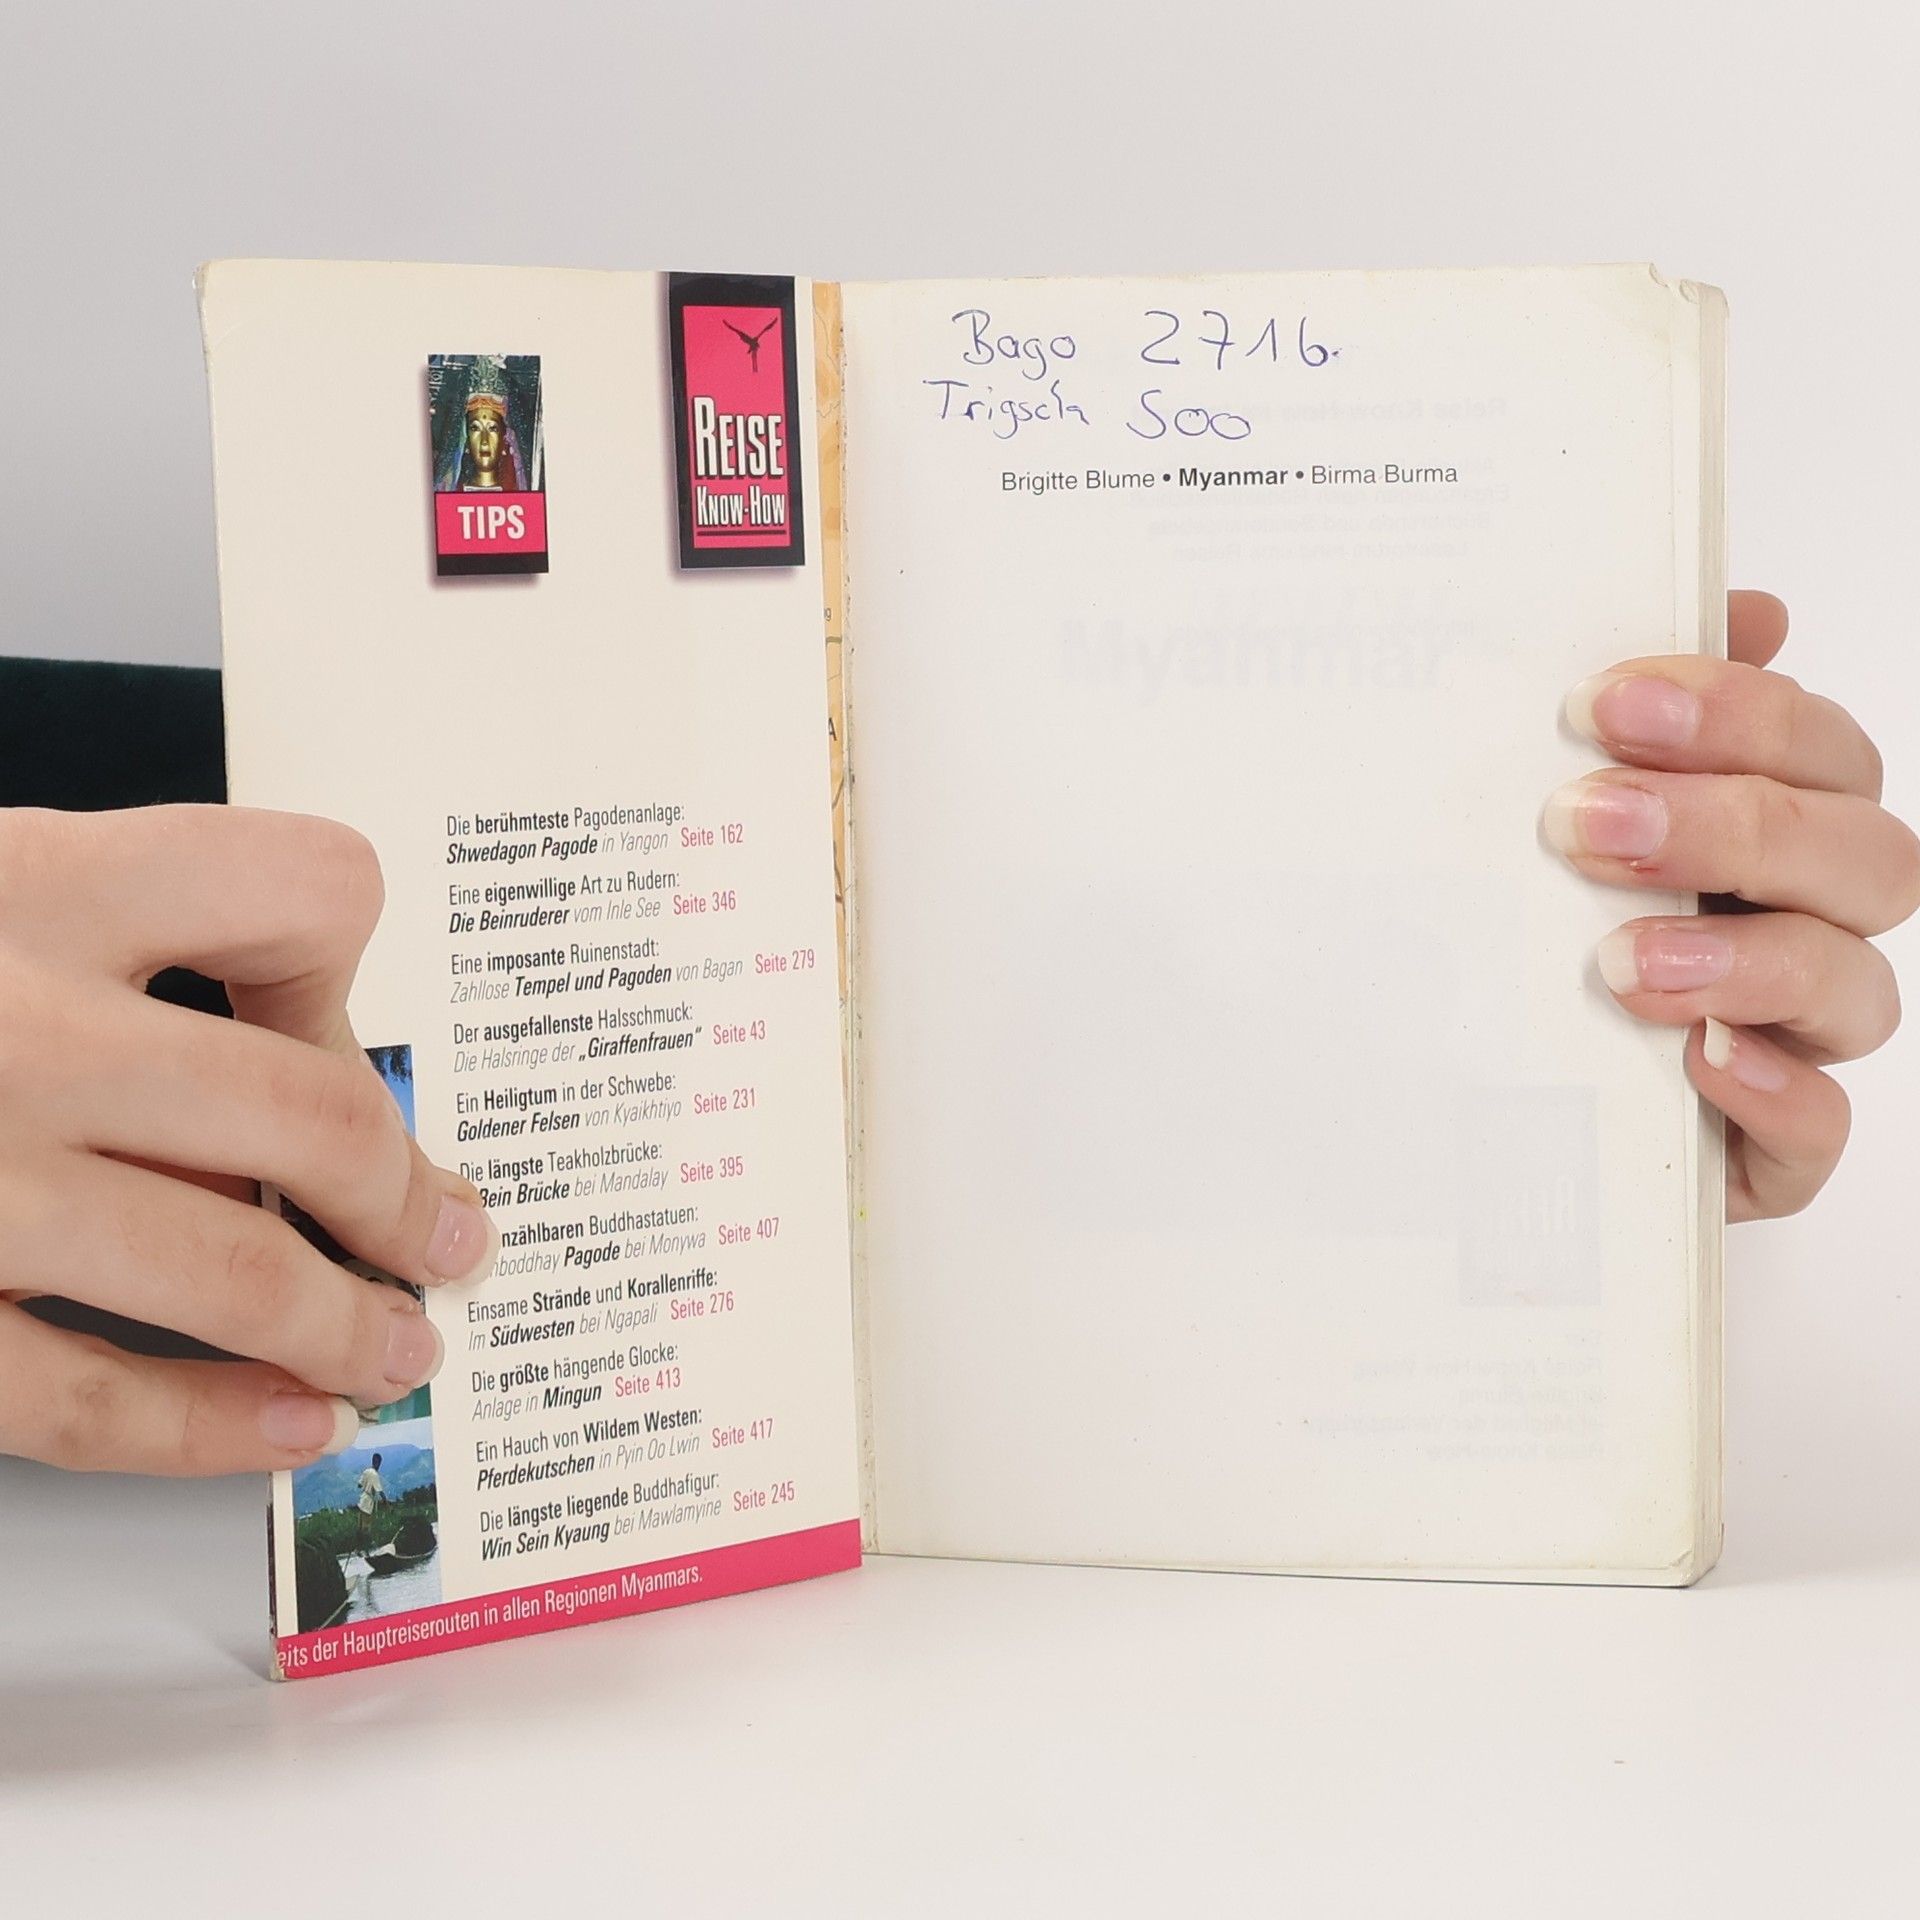 TIPS
REISE
KNOW-HOW
Die berühmteste Pagodenanlage:
Shwedagon Pagode in Yangon Seite 162
Eine eigenwillige Art zu Rudern:
Die Beinruderer vom Inle See Seite 346
Eine imposante Ruinenstadt:
Zahllose Tempel und Pagoden von Bagan Seite 279
Der ausgefallenste Halsschmuck:
Die Halsringe der „Giraffenfrauen“ Seite 43
Ein Heiligtum in der Schwebe:
Goldener Felsen von Kyaikhtiyo Seite 231
Die längste Teakholzbrücke:
Bein Brücke bei Mandalay Seite 395
nzählbaren Buddhastatuen:
boddhay Pagode bei Monywa Seite 407
Einsame Strände und Korallenriffe:
Im Südwesten bei Ngapali Seite 276
Die größte hängende Glocke:
Anlage in Mingun Seite 413
Ein Hauch von Wildem Westen:
Pferdekutschen in Pyin Oo Lwin Seite 417
Die längste liegende Buddhafigur:
Win Sein Kyaung bei Mawlamyine Seite 245
eits der Hauptreiserouten in allen Regionen Myanmars.
Bago 2716.
500
Brigitte Blume • Myanmar • Birma Burma